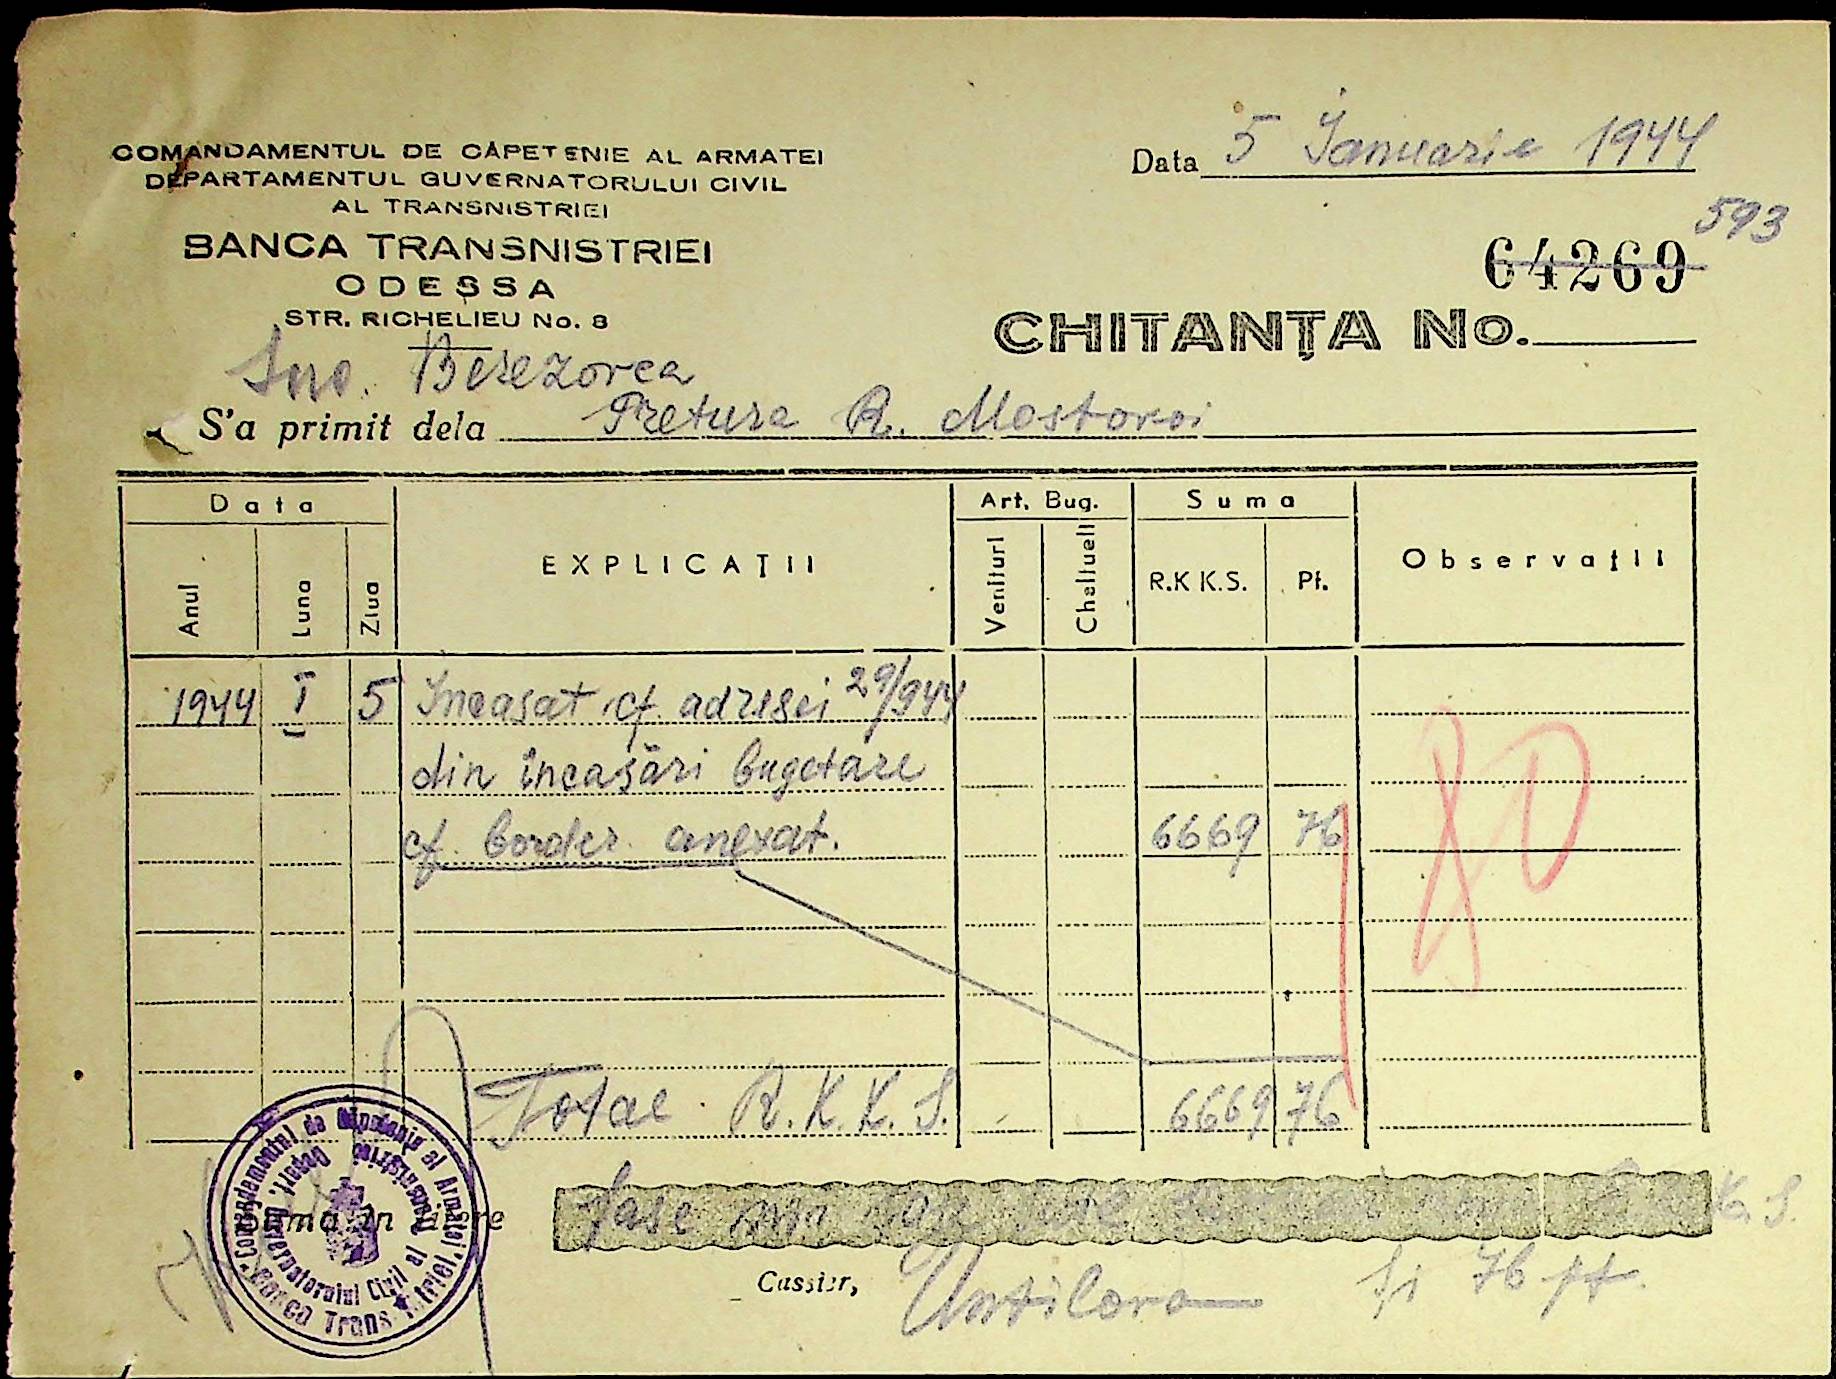 COMANDAMENTUL DE CĂPETENIE AL ARMATEI
DEPARTAMENTUL GUVERNATORULUI CIVIL
AL TRANSNISTRIEI
BANCA TRANSNISTRIEI
ODESSA
STR. RICHELIEU No. 8
Data 5 Ianuarie 1944
593
64269
CHITANȚA No.
Berezovca
S'a primit dela Pretura R. Mostovoi
Data
Art. Bug.
Suma
Anul Luna Ziua
EXPLICAȚII
Venituri Cheltueli
R.K K.S. Pf.
Observații
1944 I 5 Incasat cf. adresei 29/944
din încasări bugetare
cf. border. anexat. 6669 76
80
Total R.K.K.S. 6669 76
Suma în litere șase mii K.S.
și 76 pf.
Cassier,
Comandamentul de Căpetenie al Armatei
Depart. Guvernatorului Civil al Transnistriei
Banca Transnistriei